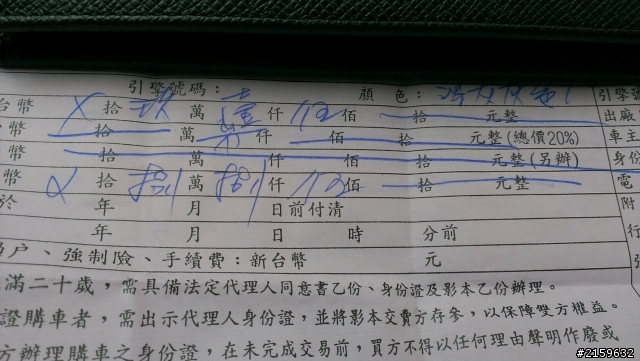 引擎號碼： 顏色：
台幣 拾 玖 萬 壹 仟 佰 拾 元整 出廠
幣 拾 萬 仟 佰 拾 元整(總價20%) 車主
幣 拾 萬 仟 佰 拾 元整(另辦) 身份
幣 拾 捌 萬 捌 仟 佰 拾 元整 電
於 年 月 日前付清 附
年 月 日 時 分前 行
戶、強制險、手續費：新台幣 元
滿二十歲，需具備法定代理人同意書乙份、身份證及影本乙份辦理。
證購車者，需出示代理人身份證，並將影本交賣方存參，以保障雙方權益。
方辦理購車之身份證，在未完成交易前，買方不得以任何理由聲明作廢或
#2159632